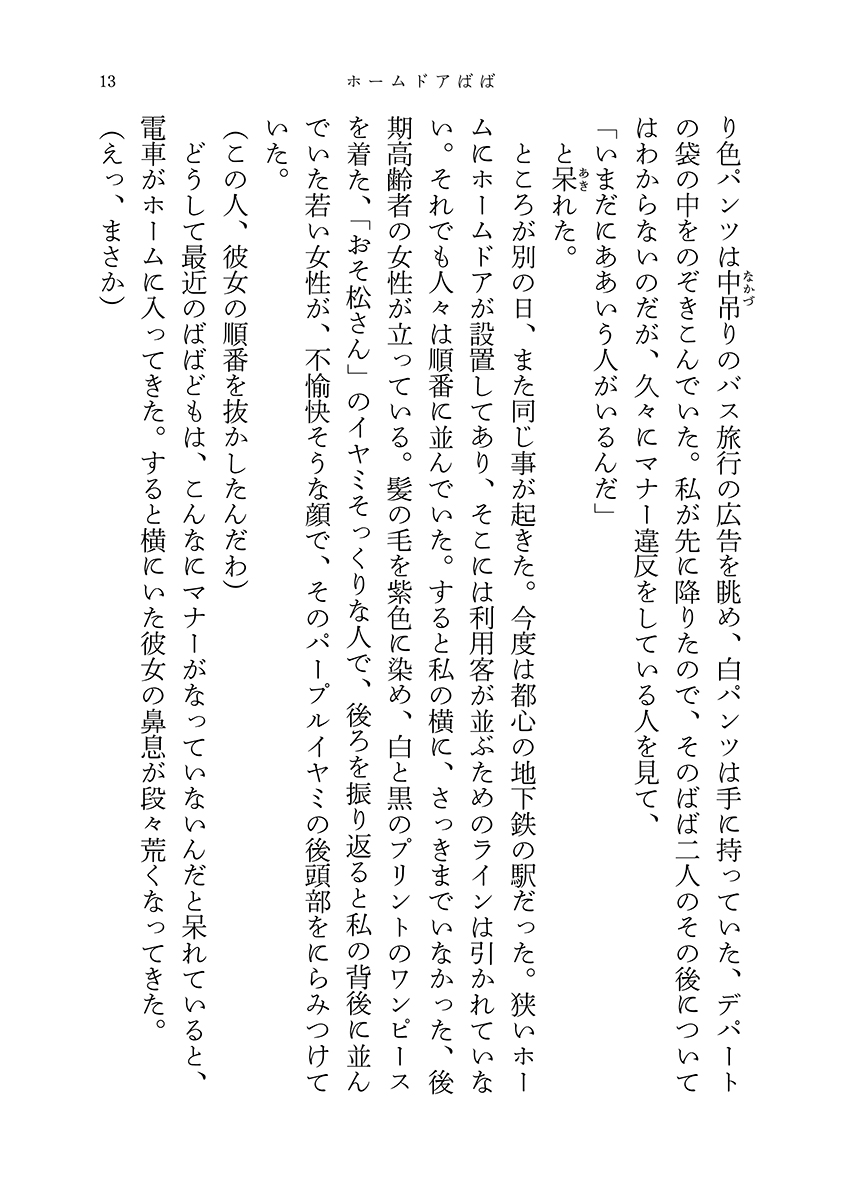 13
ホームドアばば
り色パンツは中吊りのバス旅行の広告を眺め、白パンツは手に持っていた、デパート
なかづ
の袋の中をのぞきこんでいた。私が先に降りたので、そのばば二人のその後について
はわからないのだが、久々にマナー違反をしている人を見て、
「いまだにああいう人がいるんだ」
と呆れた。
あき
ところが別の日、また同じ事が起きた。今度は都心の地下鉄の駅だった。狭いホー
ムにホームドアが設置してあり、そこには利用客が並ぶためのラインは引かれていな
い。それでも人々は順番に並んでいた。すると私の横に、さっきまでいなかった、後
期高齢者の女性が立っている。髪の毛を紫色に染め、白と黒のプリントのワンピース
を着た、「おそ松さん」のイヤミそっくりな人で、後ろを振り返ると私の背後に並ん
でいた若い女性が、不愉快そうな顔で、そのパープルイヤミの後頭部をにらみつけて
いた。
(この人、彼女の順番を抜かしたんだわ)
どうして最近のばばどもは、こんなにマナーがなっていないんだと呆れていると、
電車がホームに入ってきた。すると横にいた彼女の鼻息が段々荒くなってきた。
(えっ、まさか)